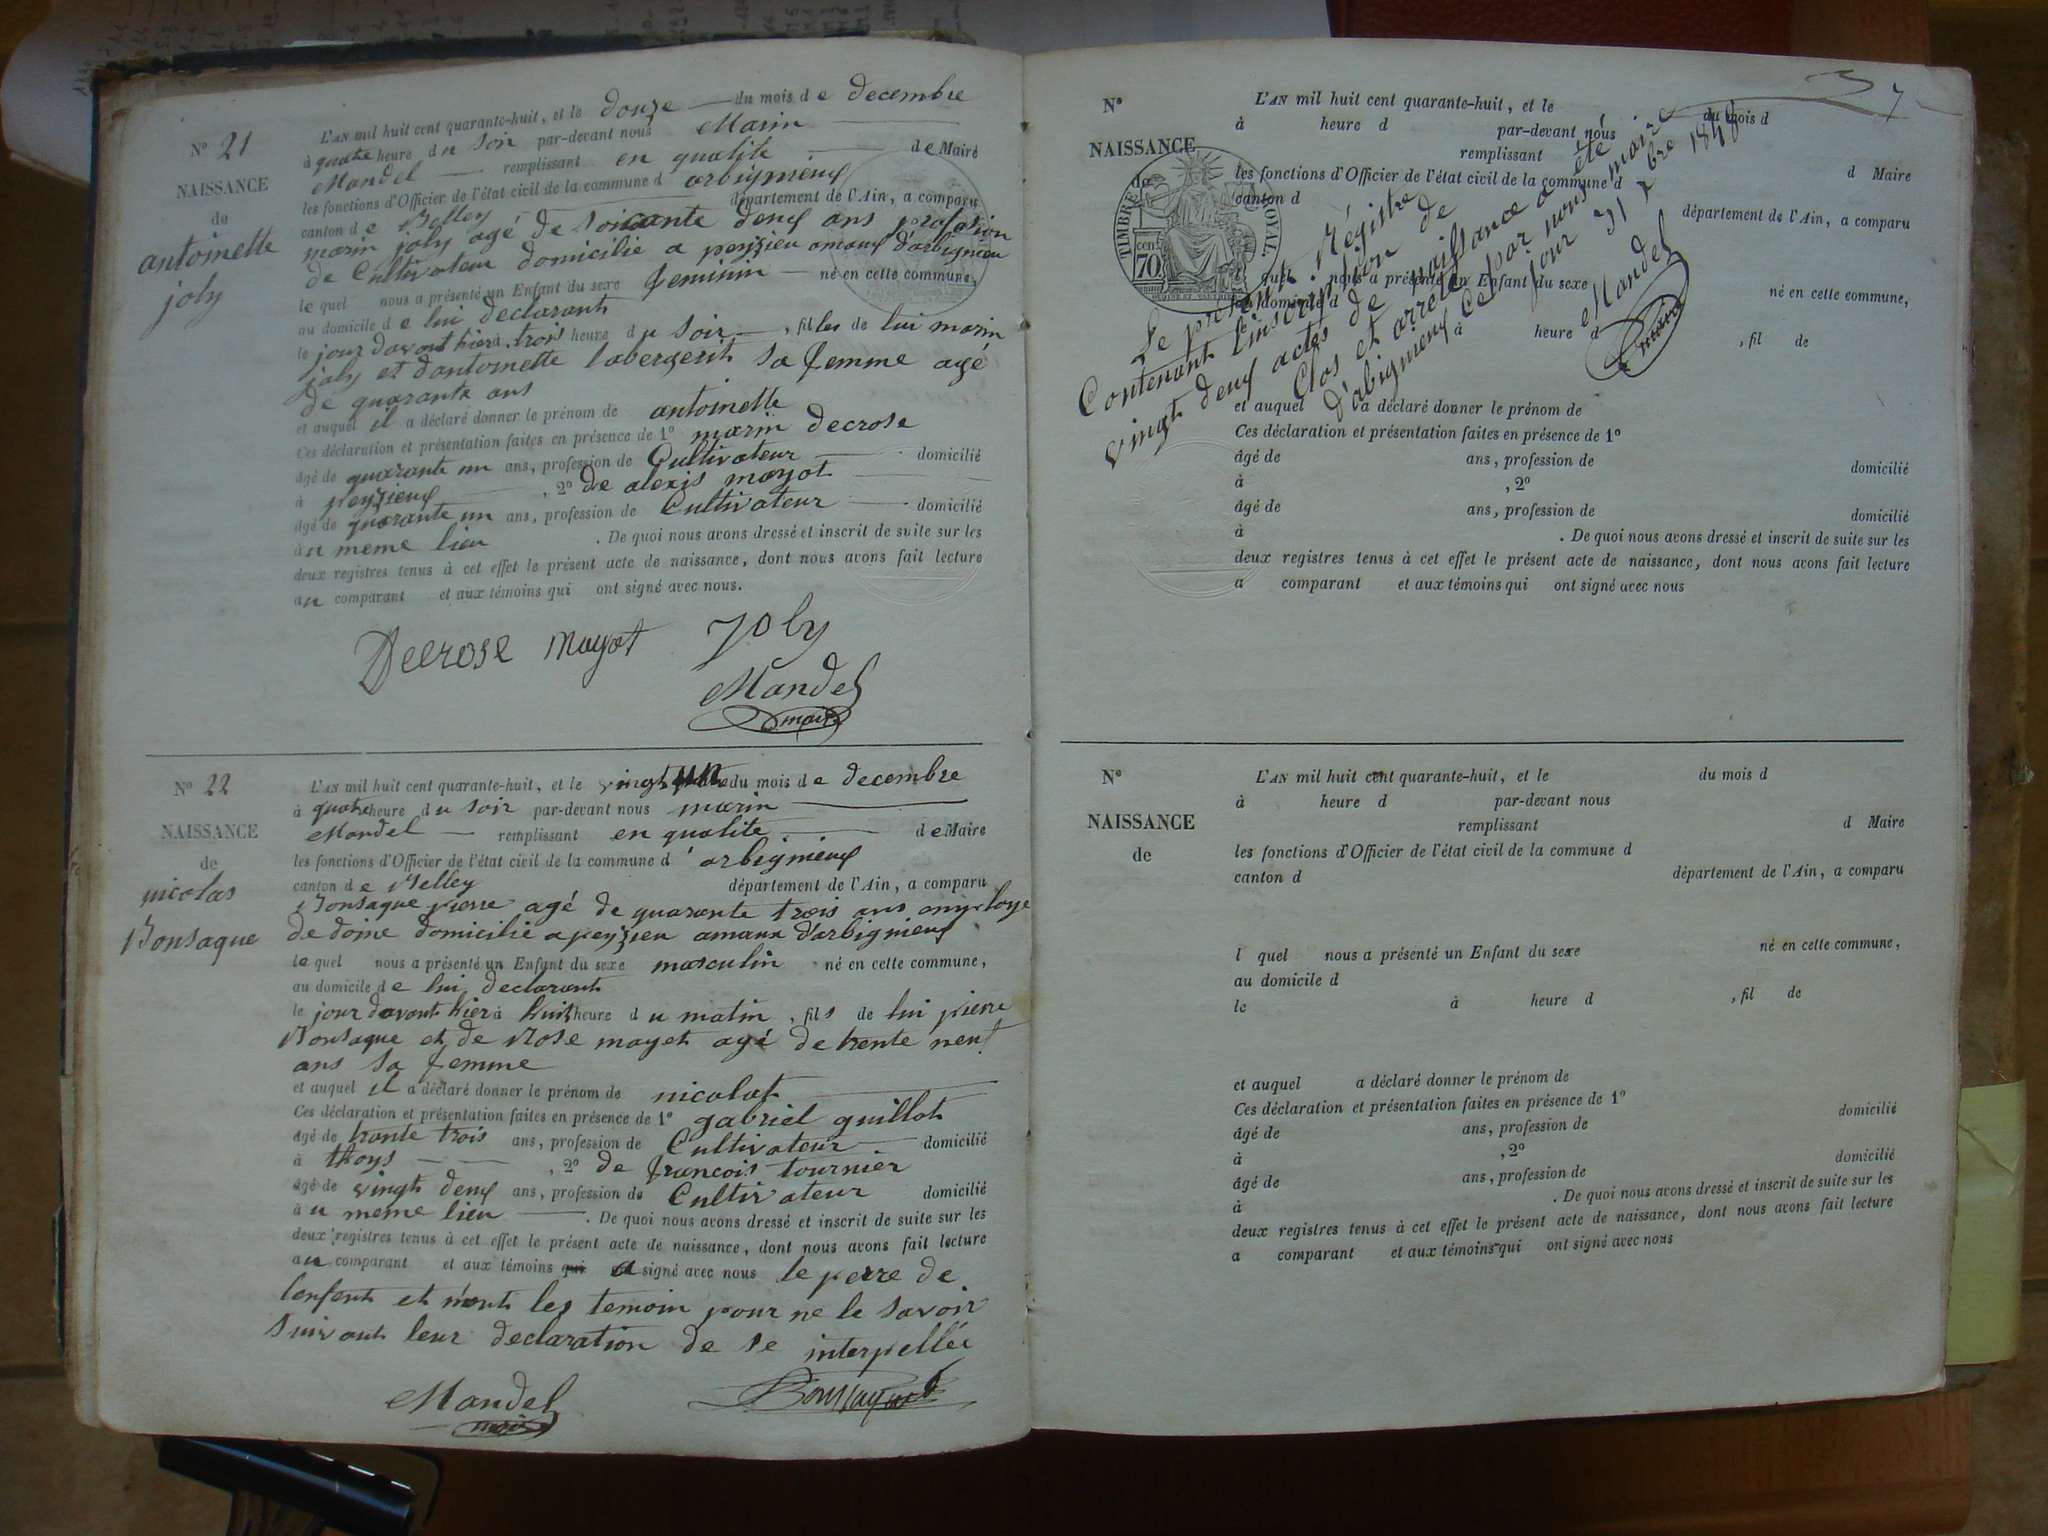 N° 21
NAISSANCE
de
antoinette
joly
L'AN mil huit cent quarante-huit, et le douze du mois de decembre
à quatre heure du soir par-devant nous Marin
Mandel remplissant en qualite de Maire
les fonctions d'Officier de l'état civil de la commune d arbignieux
canton de Belley département de l'Ain, a comparu
marin joly agé de soixante deux ans profession
de Cultivateur domicilié a peyzieu amaux d'arbignieu
le quel nous a présenté un Enfant du sexe feminin né en cette commune,
au domicile de lui declarant
le jour davant hier à trois heure du soir, filles de lui marin
joly et d'antoinette labergerit sa femme agé
de quarante ans
et auquel il a déclaré donner le prénom de antoinette
Ces déclaration et présentation faites en présence de 1° marin Decrose
âgé de quarante un ans, profession de Cultivateur domicilié
à peyzieux, 2° de alexis mayot
âgé de quarante un ans, profession de Cultivateur domicilié
au meme lieu. De quoi nous avons dressé et inscrit de suite sur les
deux registres tenus à cet effet le présent acte de naissance, dont nous avons fait lecture
au comparant et aux témoins qui ont signé avec nous.
Decrose mayot Joly
Mandel
maire
N° 22
NAISSANCE
de
nicolas
Bonsaque
L'AN mil huit cent quarante-huit, et le vingt un du mois de decembre
à quatre heure du soir par-devant nous marin
Mandel remplissant en qualite de Maire
les fonctions d'Officier de l'état civil de la commune d'arbignieux
canton de Belley département de l'Ain, a comparu
Bonsaque pierre agé de quarante trois ans employe
de doine domicilié a peyzieu amaux d'arbignieux
le quel nous a présenté un Enfant du sexe masculin né en cette commune,
au domicile de lui declarant
le jour davant hier à huit heure du matin, fils de lui pierre
Bonsaque et de Rose mayet agé de trente neuf
ans sa femme
et auquel il a déclaré donner le prénom de nicolat
Ces déclaration et présentation faites en présence de 1° gabriel guillot
âgé de trante trois ans, profession de Cultivateur domicilié
à thoys, 2° de francois tournier
âgé de vingt deux ans, profession de Cultivateur domicilié
au meme lieu. De quoi nous avons dressé et inscrit de suite sur les
deux registres tenus à cet effet le présent acte de naissance, dont nous avons fait lecture
au comparant et aux témoins qui a signé avec nous le perre de
lenfent et n'ont les temoin pour ne le savoir
suivant leur declaration de se interpellée
Mandel
maire
Bonsaque
7
N°
NAISSANCE
de
TIMBRE ROYAL
70 cent
L'AN mil huit cent quarante-huit, et le du mois d
à heure d par-devant nous
remplissant d Maire
les fonctions d'Officier de l'état civil de la commune d
canton d département de l'Ain, a comparu
l quel nous a présenté un Enfant du sexe né en cette commune,
au domicile d
à heure d, fil de
et auquel a déclaré donner le prénom de
Ces déclaration et présentation faites en présence de 1°
âgé de ans, profession de domicilié
à, 2°
âgé de ans, profession de domicilié
à. De quoi nous avons dressé et inscrit de suite sur les
deux registres tenus à cet effet le présent acte de naissance, dont nous avons fait lecture
a comparant et aux témoins qui ont signé avec nous
Le présent Régistre
Contenant l'inscription de
vingt deux actes de naissance a été
Clos et arreté par nous maire
d'abignieux Ce jour 31 xbre 1848
Mandel
maire
N°
NAISSANCE
de
L'AN mil huit cent quarante-huit, et le du mois d
à heure d par-devant nous
remplissant d Maire
les fonctions d'Officier de l'état civil de la commune d
canton d département de l'Ain, a comparu
l quel nous a présenté un Enfant du sexe né en cette commune,
au domicile d
le à heure d, fil de
et auquel a déclaré donner le prénom de
Ces déclaration et présentation faites en présence de 1°
âgé de ans, profession de domicilié
à, 2°
âgé de ans, profession de domicilié
à. De quoi nous avons dressé et inscrit de suite sur les
deux registres tenus à cet effet le présent acte de naissance, dont nous avons fait lecture
a comparant et aux témoins qui ont signé avec nous